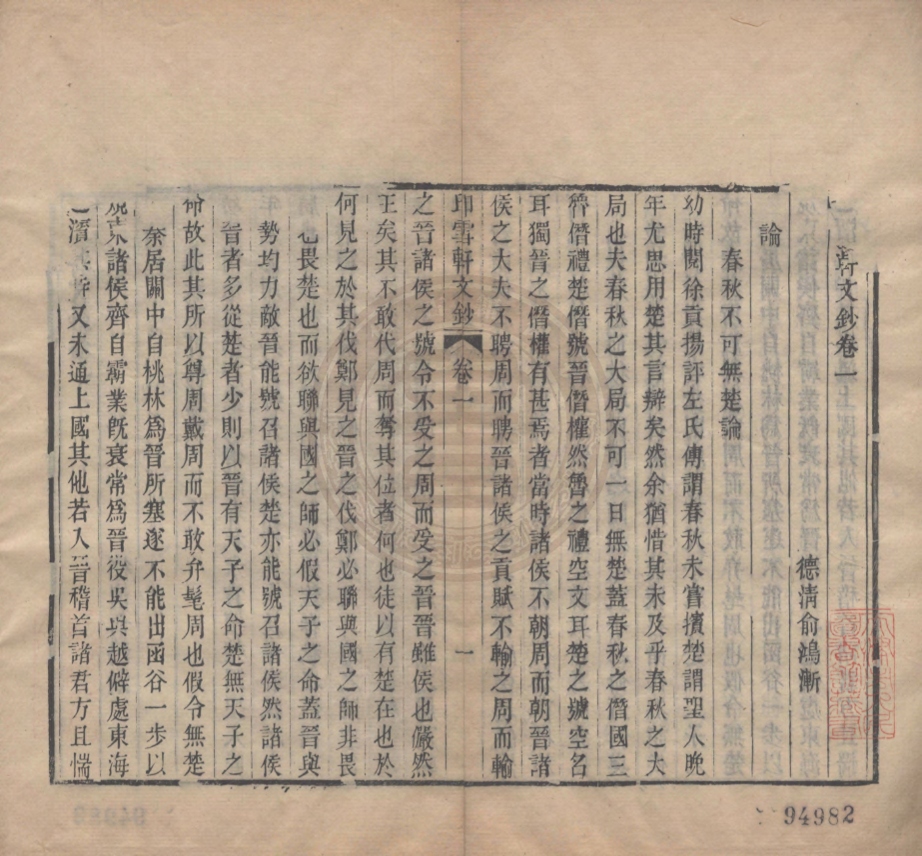 軒文鈔卷一
德淸俞鴻漸
論
春秋不可無楚論
幼時閱徐貢揚評左氏傳謂春秋未嘗擯楚謂聖人晚
年尤思用楚其言辯矣然余猶惜其未及乎春秋之大
局也夫春秋之大局不可一日無楚蓋春秋之僭國三
魯僭禮楚僭號晉僭權然魯之禮空文耳楚之號空名
耳獨晉之僭權有甚焉者當時諸侯不朝周而朝晉諸
侯之大夫不聘周而聘晉諸侯之貢賦不輸之周而輸
印雪軒文鈔 卷一 一
之晉諸侯之號令不受之周而受之晉晉雖侯也儼然
王矣其不敢代周而奪其位者何也徒以有楚在也於
何見之於其伐鄭見之晉之伐鄭必聯與國之師非畏
也畏楚也而欲聯與國之師必假天子之命蓋晉與
勢均力敵晉能號召諸侯楚亦能號召諸侯然諸侯
晉者多從楚者少則以晉有天子之命楚無天子之
命故此其所以尊周戴周而不敢弁髦周也假令無楚
奏居關中自桃林爲晉所塞遂不能出函谷一步以
諸侯齊自霸業旣衰常爲晉役吳與越僻處東海
又未通上國其他若人晉稽首諸君方且惴
94982